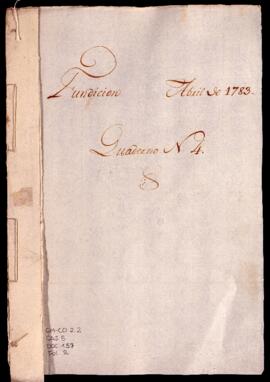 Fundicion Abril de 1783.
Quaderno N 4.
CM-CO 2.2
CAJ 5
DOC 157
Fol. 2